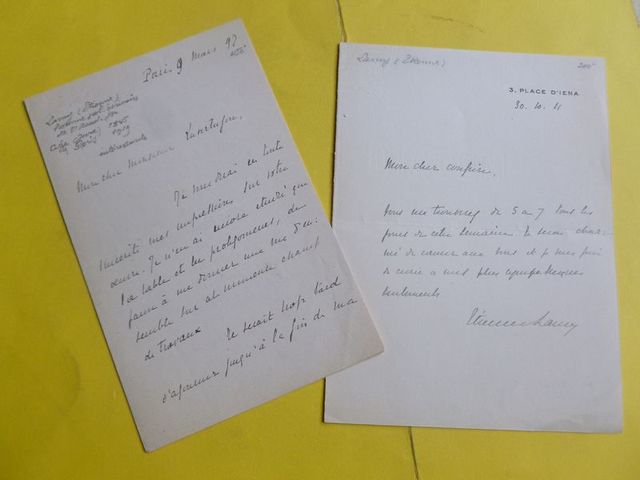 Paris 9 Mars 97
Lamy (Etienne)
1845
1919
intéressante
Mon cher Monsieur
Je voudrai en toute
sincérité mes impressions sur votre
œuvre. Je n'en ai encore étudié que
la table et les prolégomènes, de
façon à me donner une vue d'en-
semble sur cet immense champ
de travaux Il serait trop tard
d'ajourner jusqu'à la fin de ma
Lamy (Etienne)
3, PLACE D'IENA
30. 10. 11
Mon cher confrère,
Vous me trouverez de 5 à 7 tous les
jours de cette semaine. Je serai
de causer avec vous et je vous prie
de croire à mes plus sympathiques
sentiments
Etienne Lamy